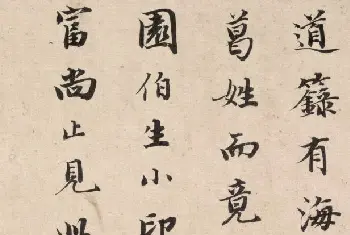 道籙有海
葛姓而竟
園伯生小印
富尚止見